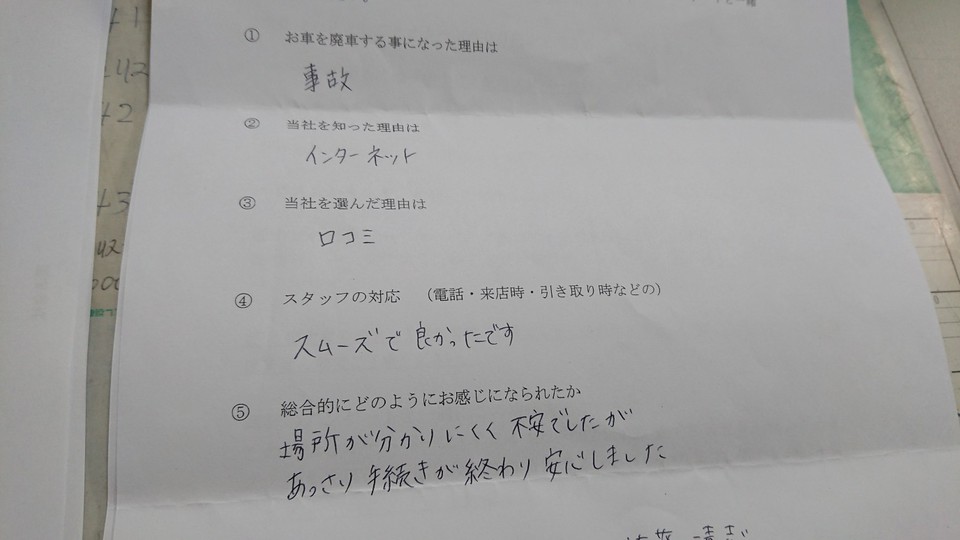 ① お車を廃車する事になった理由は
事故
② 当社を知った理由は
インターネット
③ 当社を選んだ理由は
口コミ
④ スタッフの対応 （電話・来店時・引き取り時などの）
スムーズで良かったです
⑤ 総合的にどのようにお感じになられたか
場所が分かりにくく不安でしたが
あっさり手続きが終わり安心しました